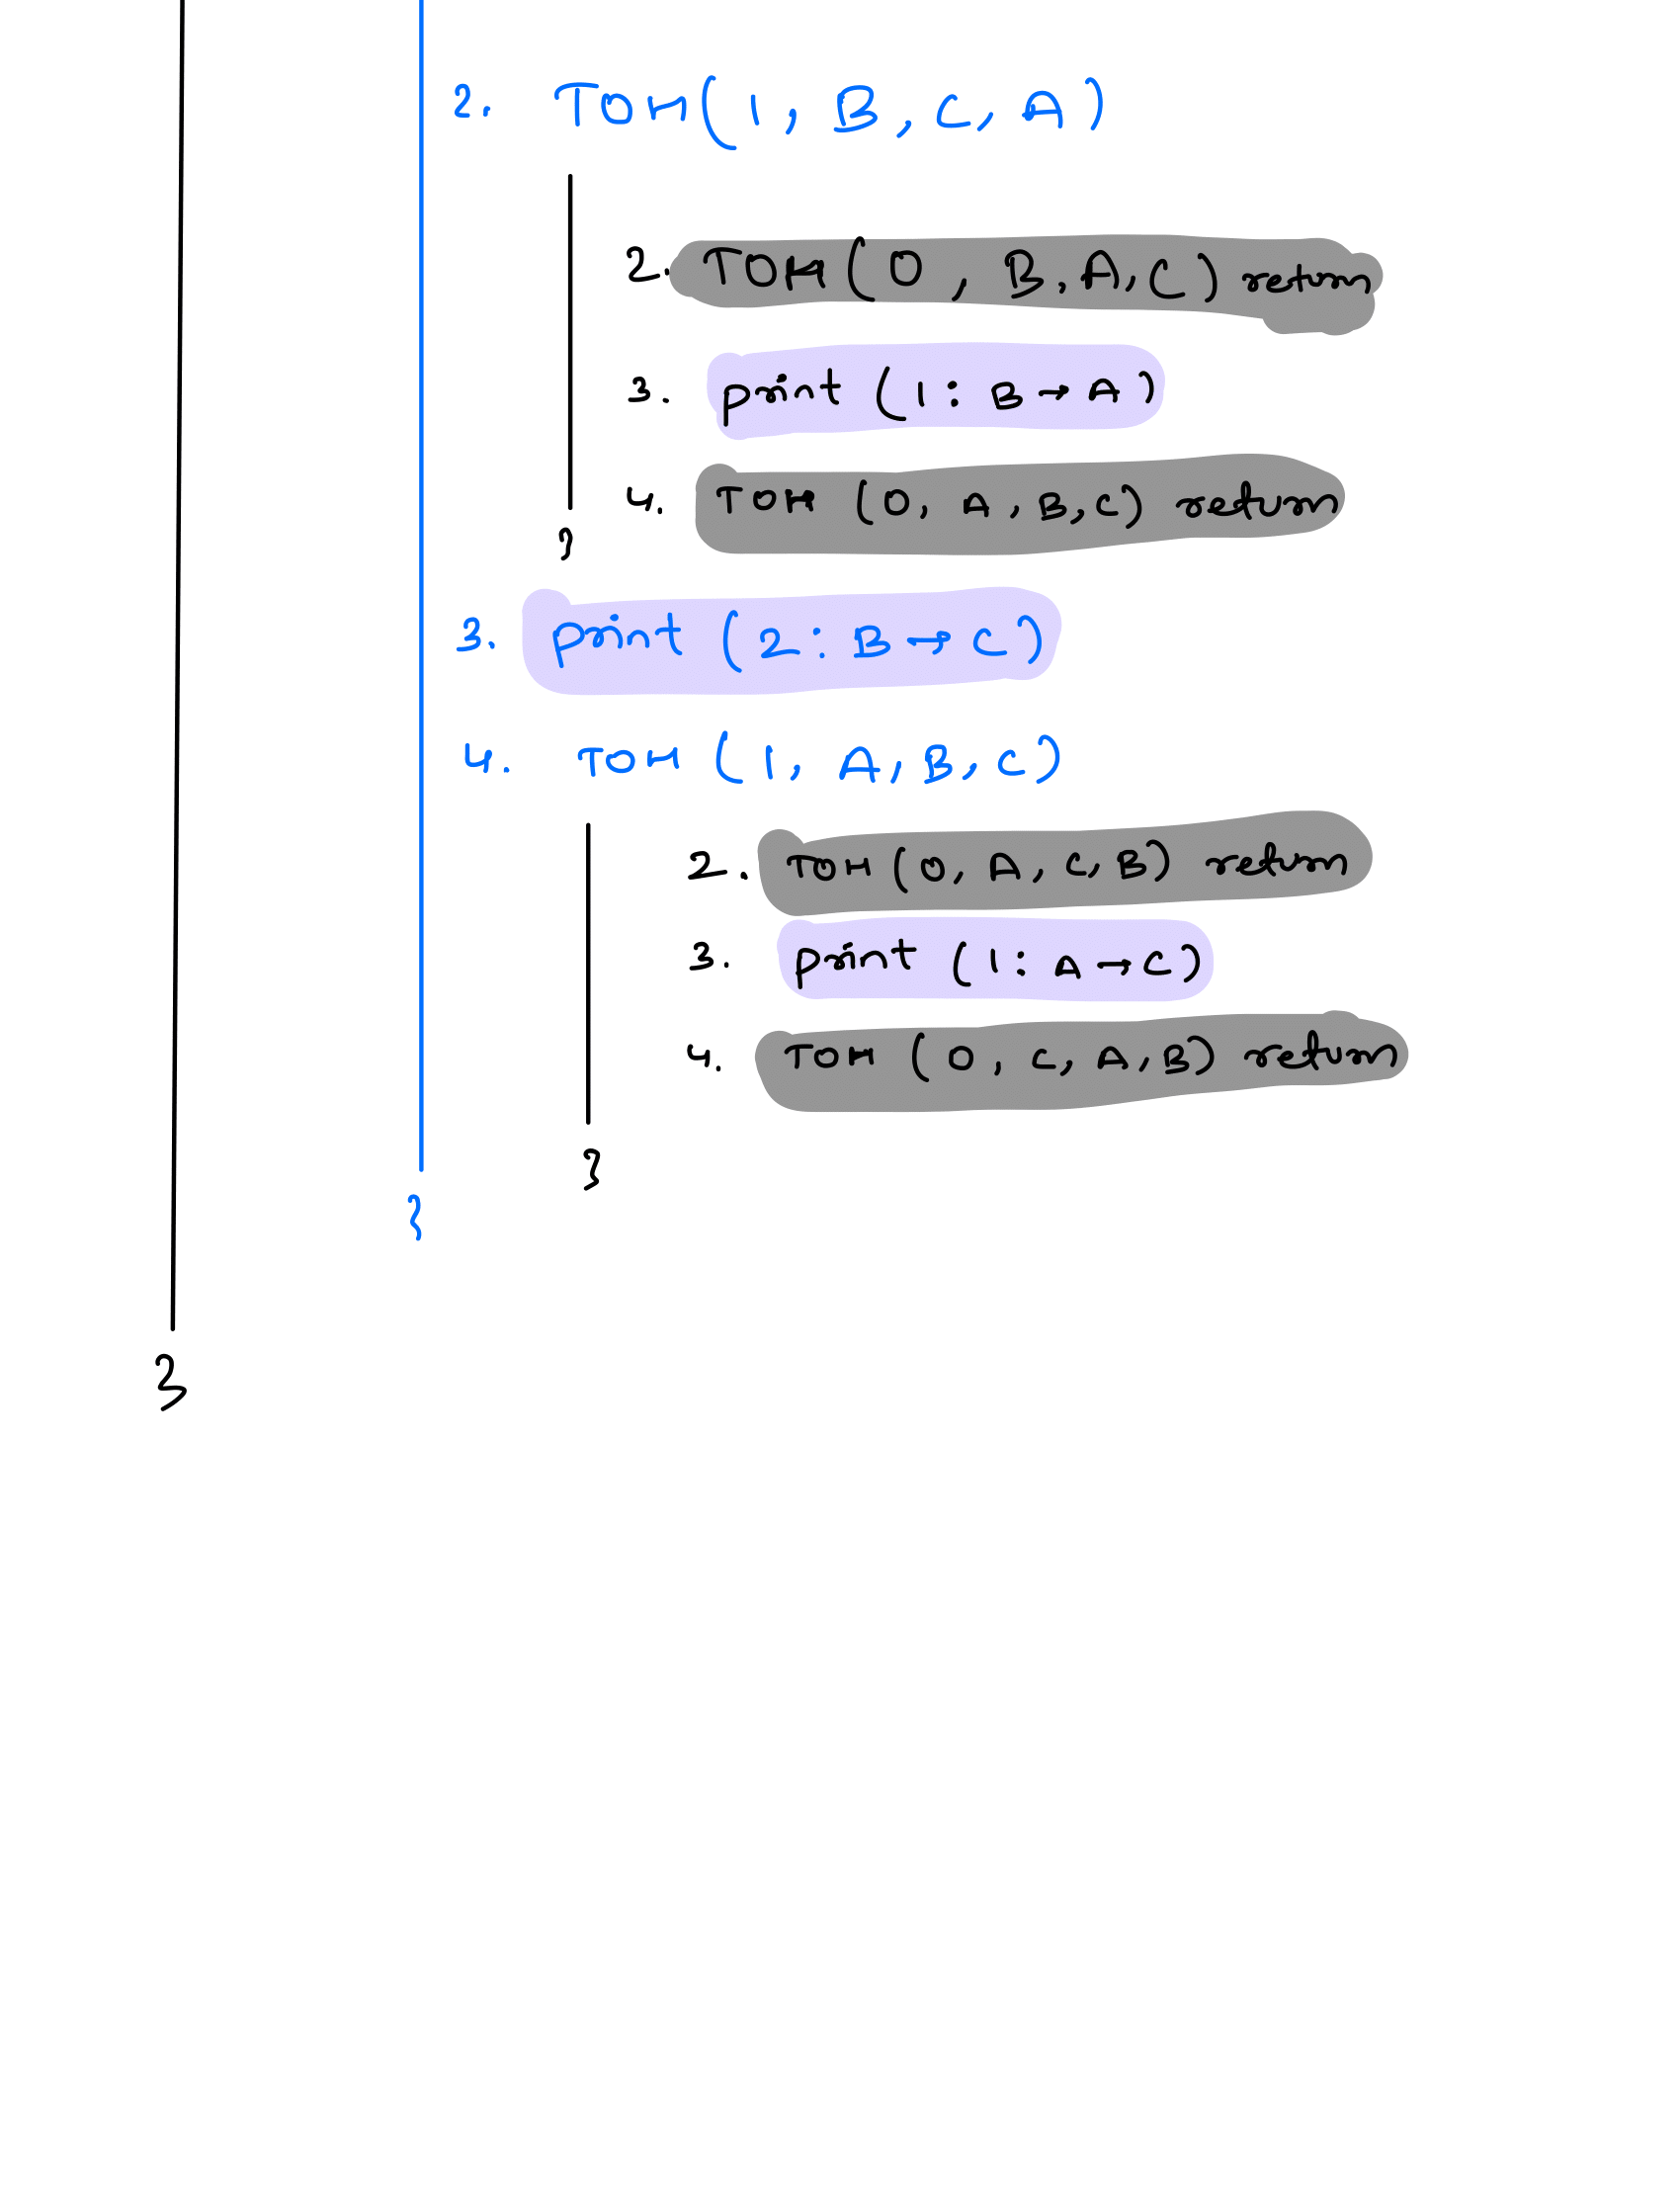 2. TOH(1, B, C, A)
2. TOH(0, B, A, C) return
3. print (1: B → A)
4. TOH (0, A, B, C) return
}
3. print (2: B → C)
4. TOH (1, A, B, C)
2. TOH (0, A, C, B) return
3. print (1: A → C)
4. TOH (0, C, A, B) return
}
}
}